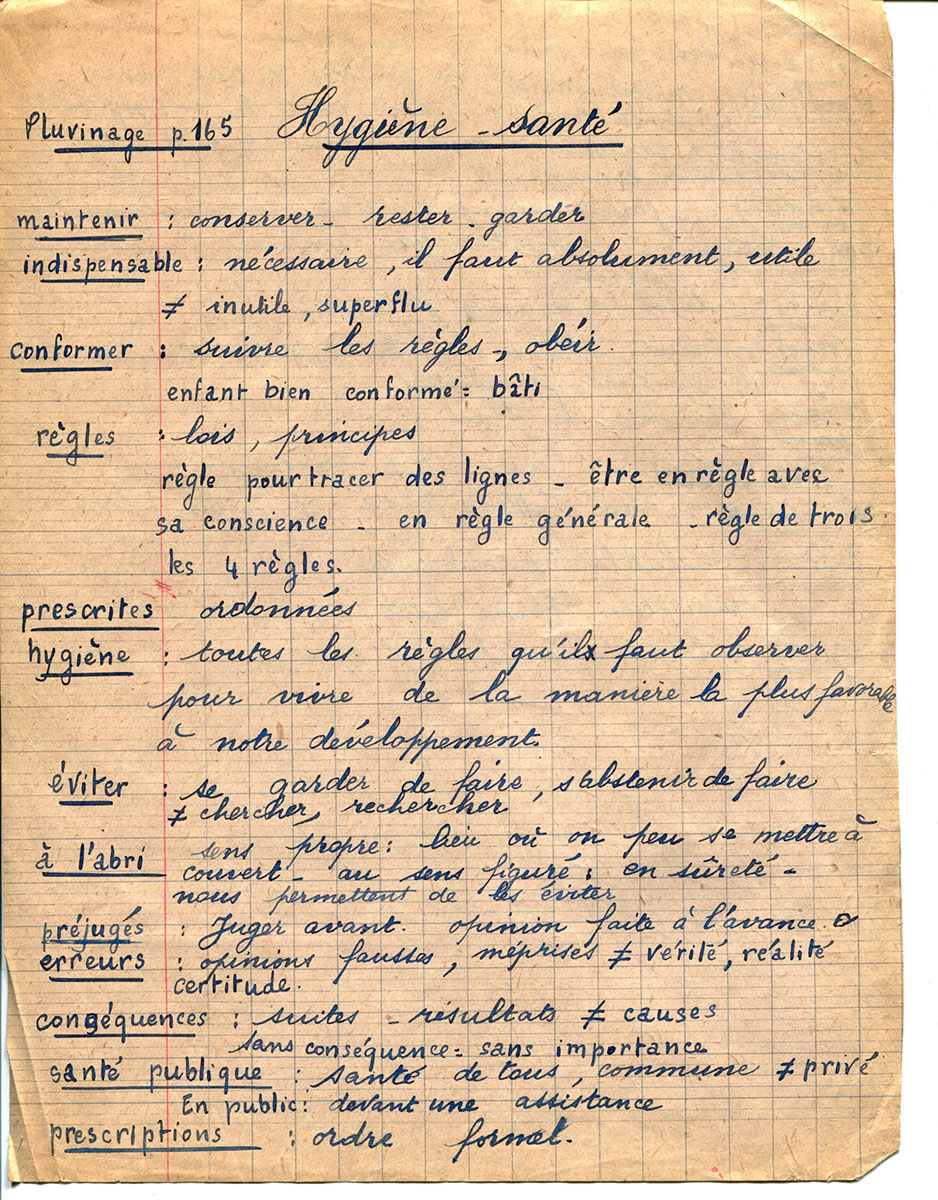 Pluvinage p.165 Hygiène - santé
maintenir : conserver - rester - garder
indispensable : nécessaire, il faut absolument, utile
≠ inutile, superflu
conformer : suivre les règles -, obéir.
enfant bien conformé = bâti
règles : lois, principes
règle pour tracer des lignes - être en règle avec
sa conscience - en règle générale - règle de trois.
les 4 règles.
prescrites ordonnées
hygiène : toutes les règles qu'il faut observer
pour vivre de la manière la plus favorable
à notre développement.
éviter : se garder de faire, s'abstenir de faire
≠ chercher, rechercher
à l'abri sens propre : lieu où on peu se mettre à
couvert - au sens figuré : en sûreté -
nous permettent de les éviter
préjugés : Juger avant. opinion faite à l'avance.
erreurs : opinions fausses, méprises ≠ vérité, réalité
certitude.
conséquences : suites - résultats ≠ causes
sans conséquence = sans importance
santé publique : santé de tous, commune ≠ privé
En public : devant une assistance
prescriptions : ordre formel.